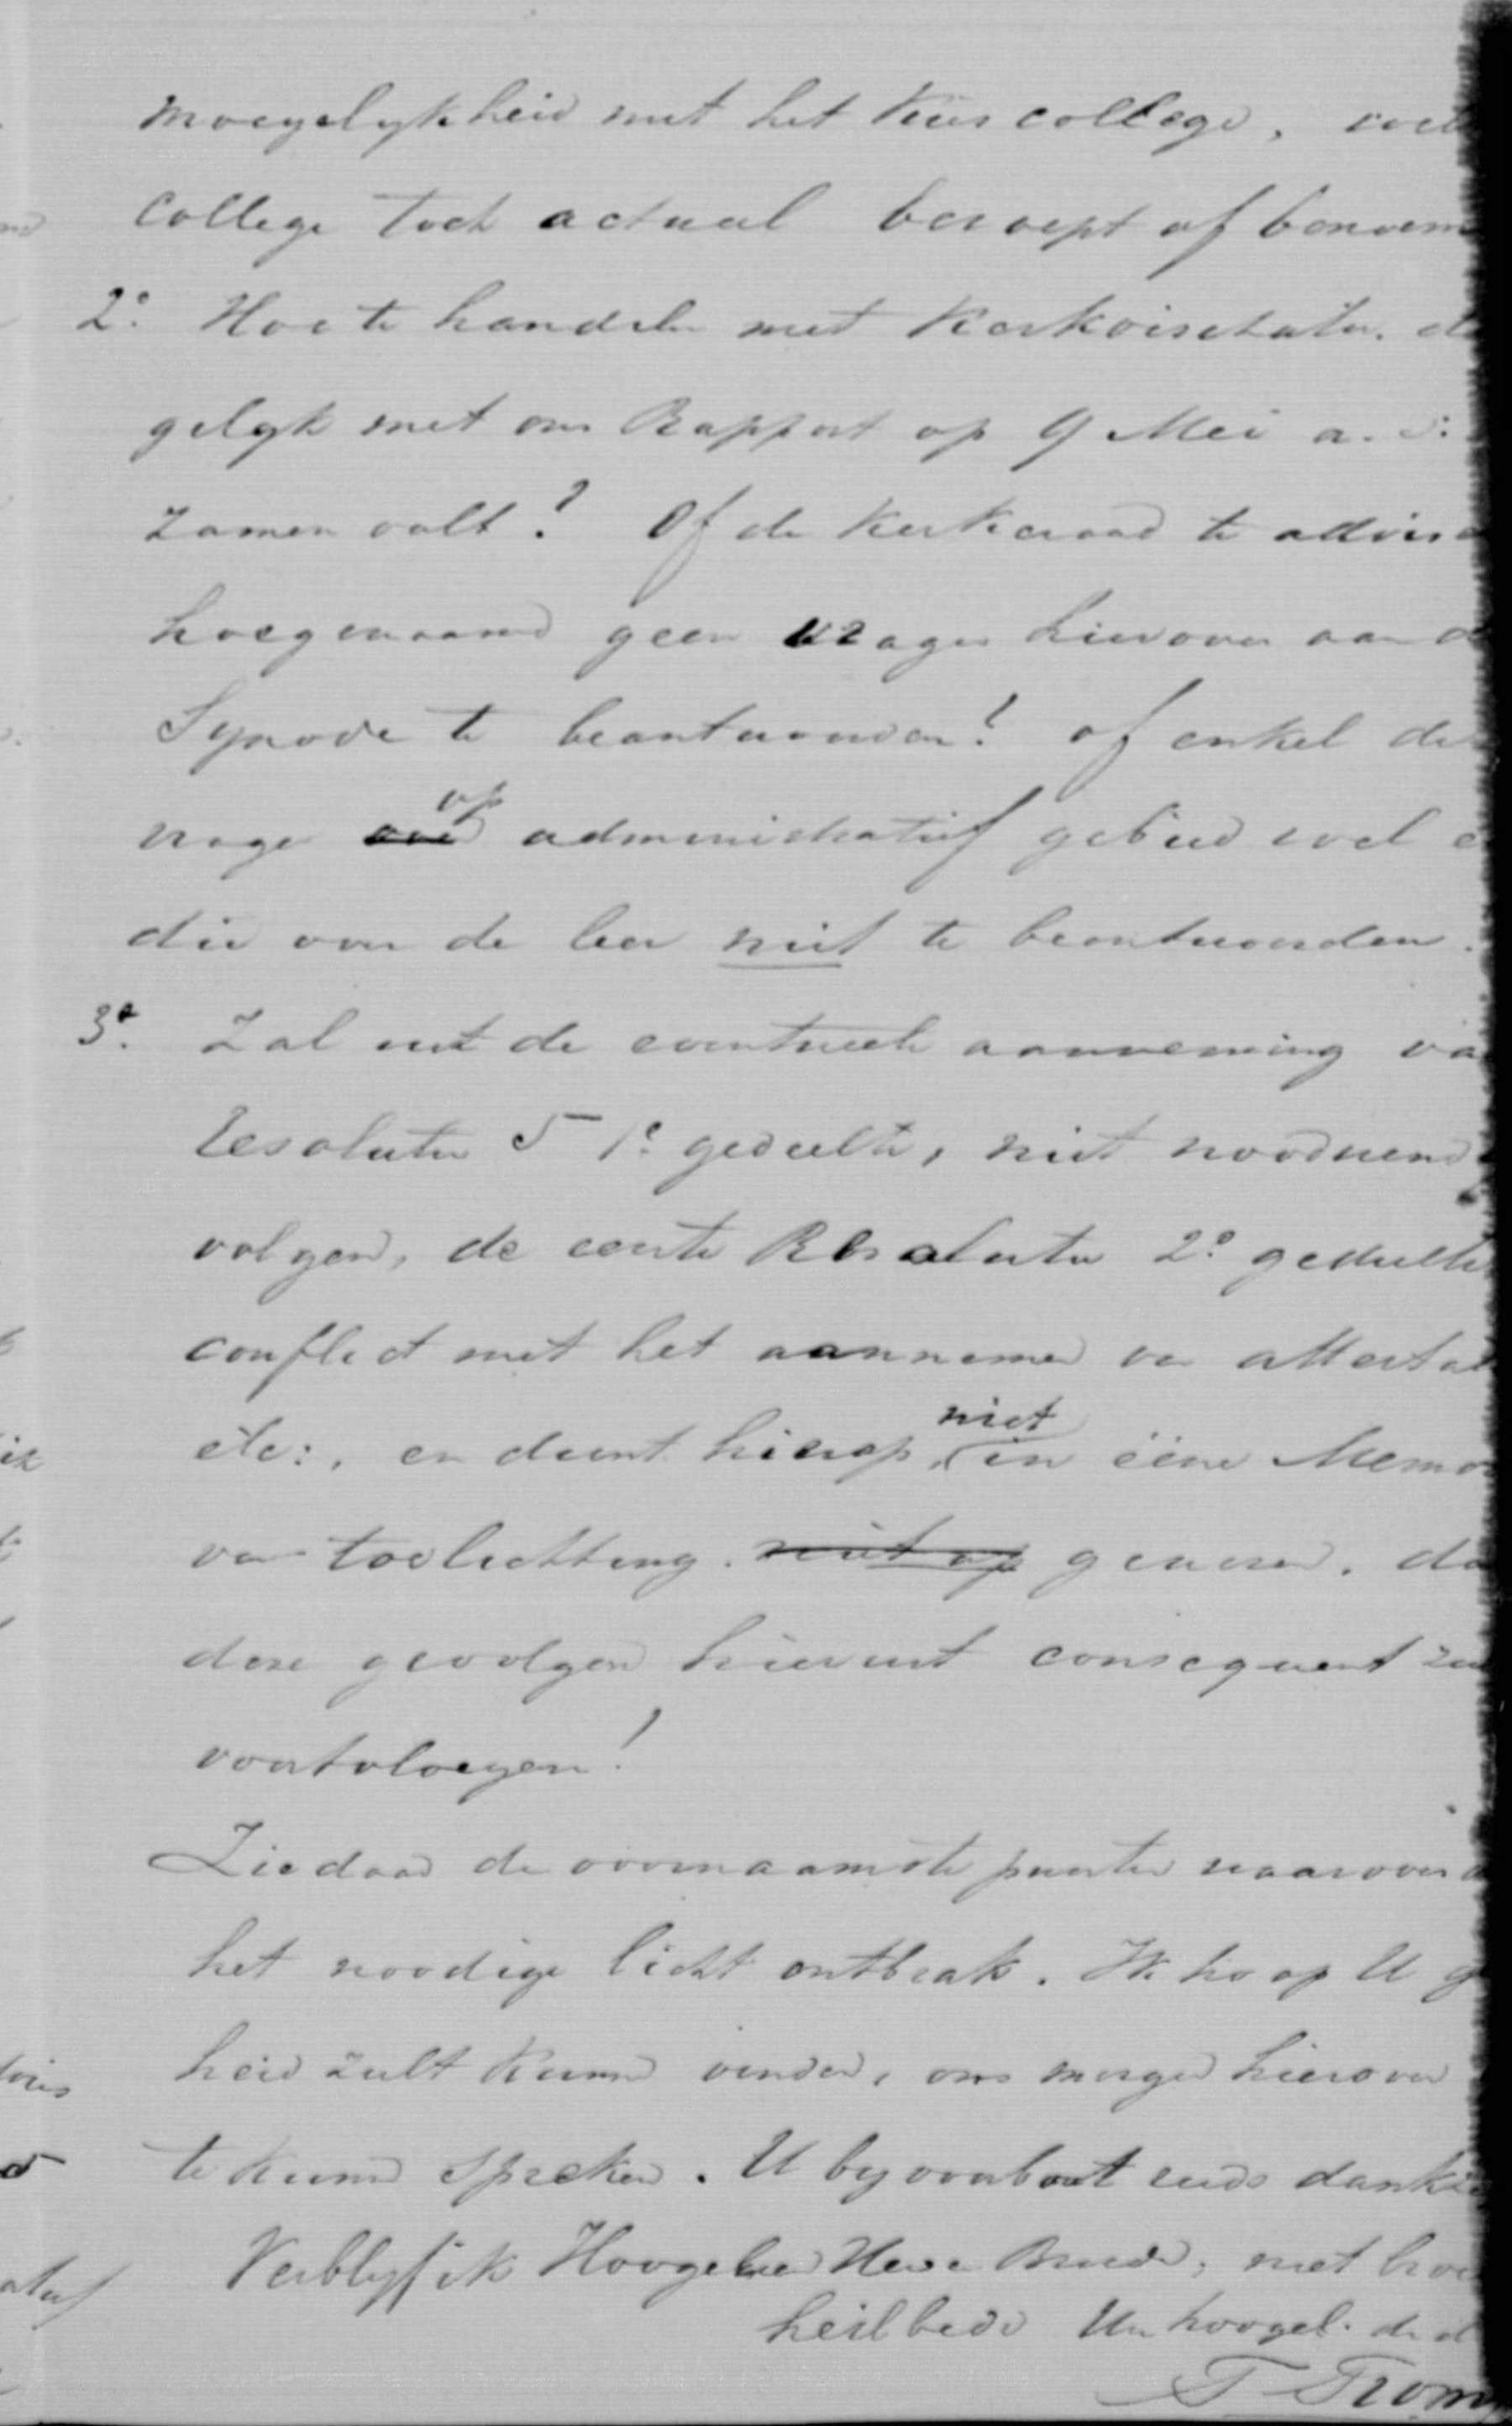 moeyelykheid met het Kies college,
College toch actueel beroept of benoem
2º. Hoe te handelen met Kerkvisitatie. d
gelyk met ons Rapport op 9 Mei a. s.
zamen valt? Of de Kerkeraad te advise
hoegenaamd geen vragen hierover aan d
Synode te beantwoorden? of enkel de
vrage op administratief gebied wel e
die over de leer niet te beantwoorden.
3º. Zal uit de eventueele aanneming va
resolutie 5 1º. gedeelte, niet noodwend
volgen, de eerste Resolutie 2º gedeelte
conflict met het aannemen van attestat
etc:, en dient hierop niet in ééne Memo
van toelichting gewezen. da
deze gevolgen hieruit consequent zu
voortvloeyen!
Ziedaar de voornaamste punten waarover d
het noodige licht ontbrak. Ik hoop U g
heid zult kunnen vinden, ons morgen hierover
te kunnen spreken. U by voorbaat reeds dank
Verblyf ik Hoogeleer Heer en Broeder, met
heilbede Uw hoogel. d
T Trom